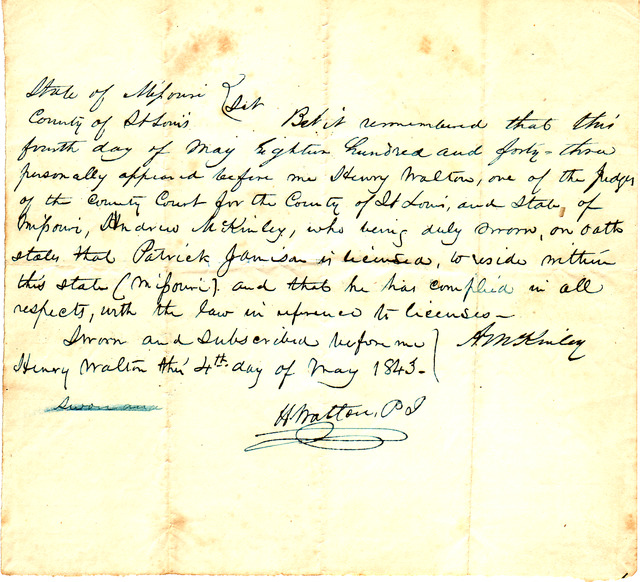 State of Missouri } Sct
County of St Louis Be it remembered that this
fourth day of May Eighteen hundred and forty-three
personally appeared before me Henry Walton, one of the Judges
of the County Court for the County of St Louis, and State of
Missouri, Andrew McKinley, who being duly sworn, on oath
states that Patrick Jamison is licensed, to reside within
this state (Missouri) and that he has complied in all
respects, with the law in reference to licenses—
Sworn and subscribed before me } A McKinley
Henry Walton this 4th day of May 1843.
Sworn and
H. Walton, P J